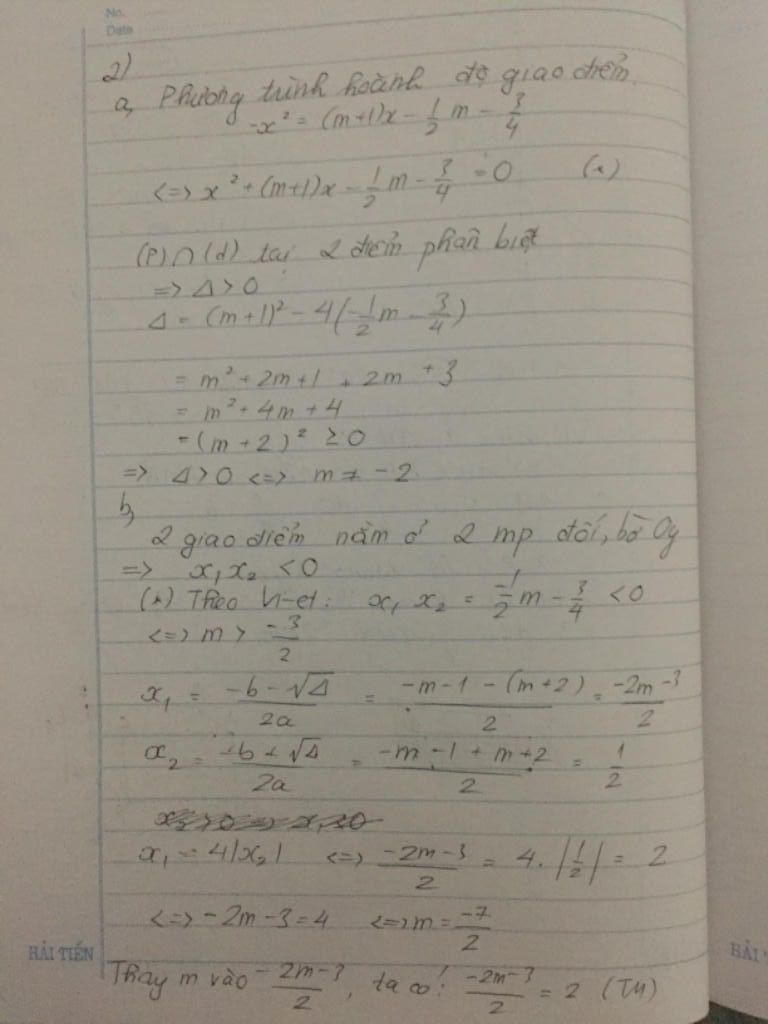 No.
Date
2)
a, Phương trình hoành độ giao điểm
-x² = (m+1)x - 1/2 m - 3/4
<=> x² + (m+1)x - 1/2 m - 3/4 = 0 (*)
(P)∩(d) tại 2 điểm phân biệt
=> Δ > 0
Δ = (m+1)² - 4(-1/2 m - 3/4)
= m² + 2m + 1 + 2m + 3
= m² + 4m + 4
= (m+2)² ≥ 0
=> Δ > 0 <=> m ≠ -2
b,
2 giao điểm nằm ở 2 mp đối, bờ Oy
=> x₁x₂ < 0
(*) Theo Vi-et: x₁ x₂ = -1/2 m - 3/4 < 0
<=> m > -3/2
x₁ = (-b - √Δ)/2a = (-m-1-(m+2))/2 = (-2m-3)/2
x₂ = (-b + √Δ)/2a = (-m-1+m+2)/2 = 1/2
x₁ = 4|x₂| <=> (-2m-3)/2 = 4.|1/2| = 2
<=> -2m-3 = 4 <=> m = -7/2
HẢI TIẾN
Thay m vào (-2m-3)/2, ta có: (-2m-3)/2 = 2 (TM)